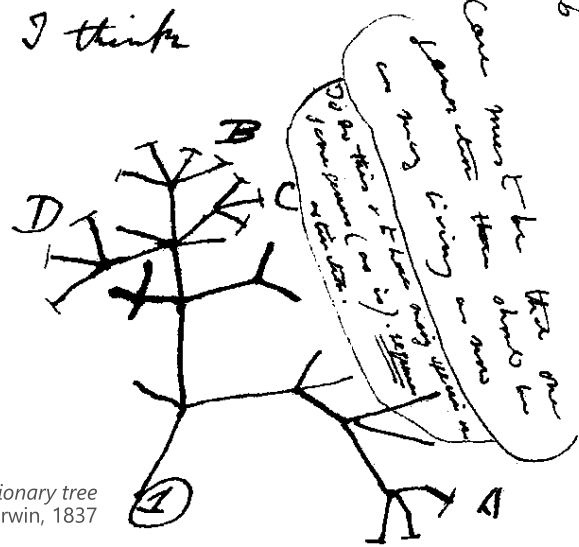 I think
B
D
C
Case must be that one
generation then should be
as many living as now
To do this & to have many species in
same genus (as is). requires
extinction.
A
1
ionary tree
rwin, 1837